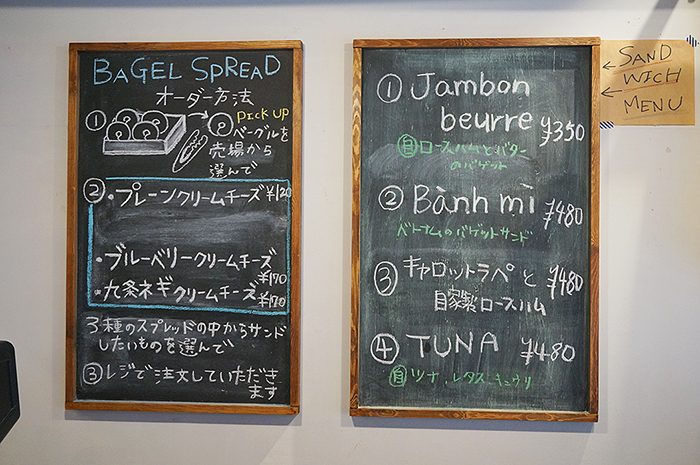 BAGEL SPREAD
オーダー方法
① → PICK UP
ベーグルを
売場から
選んで
② ・プレーンクリームチーズ ¥120
・ブルーベリークリームチーズ
¥170
・九条ネギクリームチーズ ¥170
3種のスプレッドの中からサンド
したいものを選んで
③ レジで注文していただき
ます
① Jambon
beurre ¥350
自 ロースハムとバター
のバゲット
② Bành mì ¥480
ベトナムのバゲットサンド
③ キャロットラペと ¥480
自家製ロースハム
④ TUNA ¥480
自 ツナ、レタス、キュウリ
← SAND
← WICH
MENU